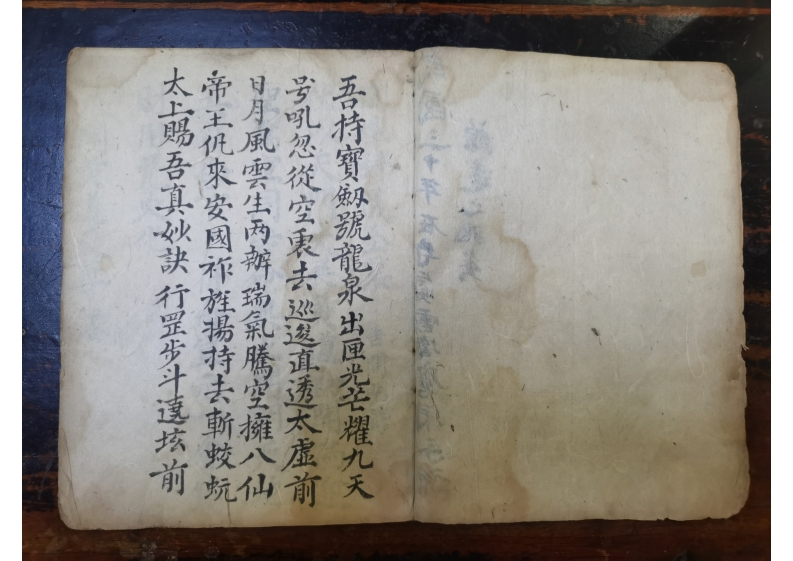 吾持寳劔號龍泉出匣光芒耀九天
号吼忽從空裏去巡逡直透太虛前
日月風雲生两辦瑞氣騰空擁八仙
帝王仉來安國祚旌揚持去斬蛟蚖
太上賜吾真妙訣行罡步斗達垓前